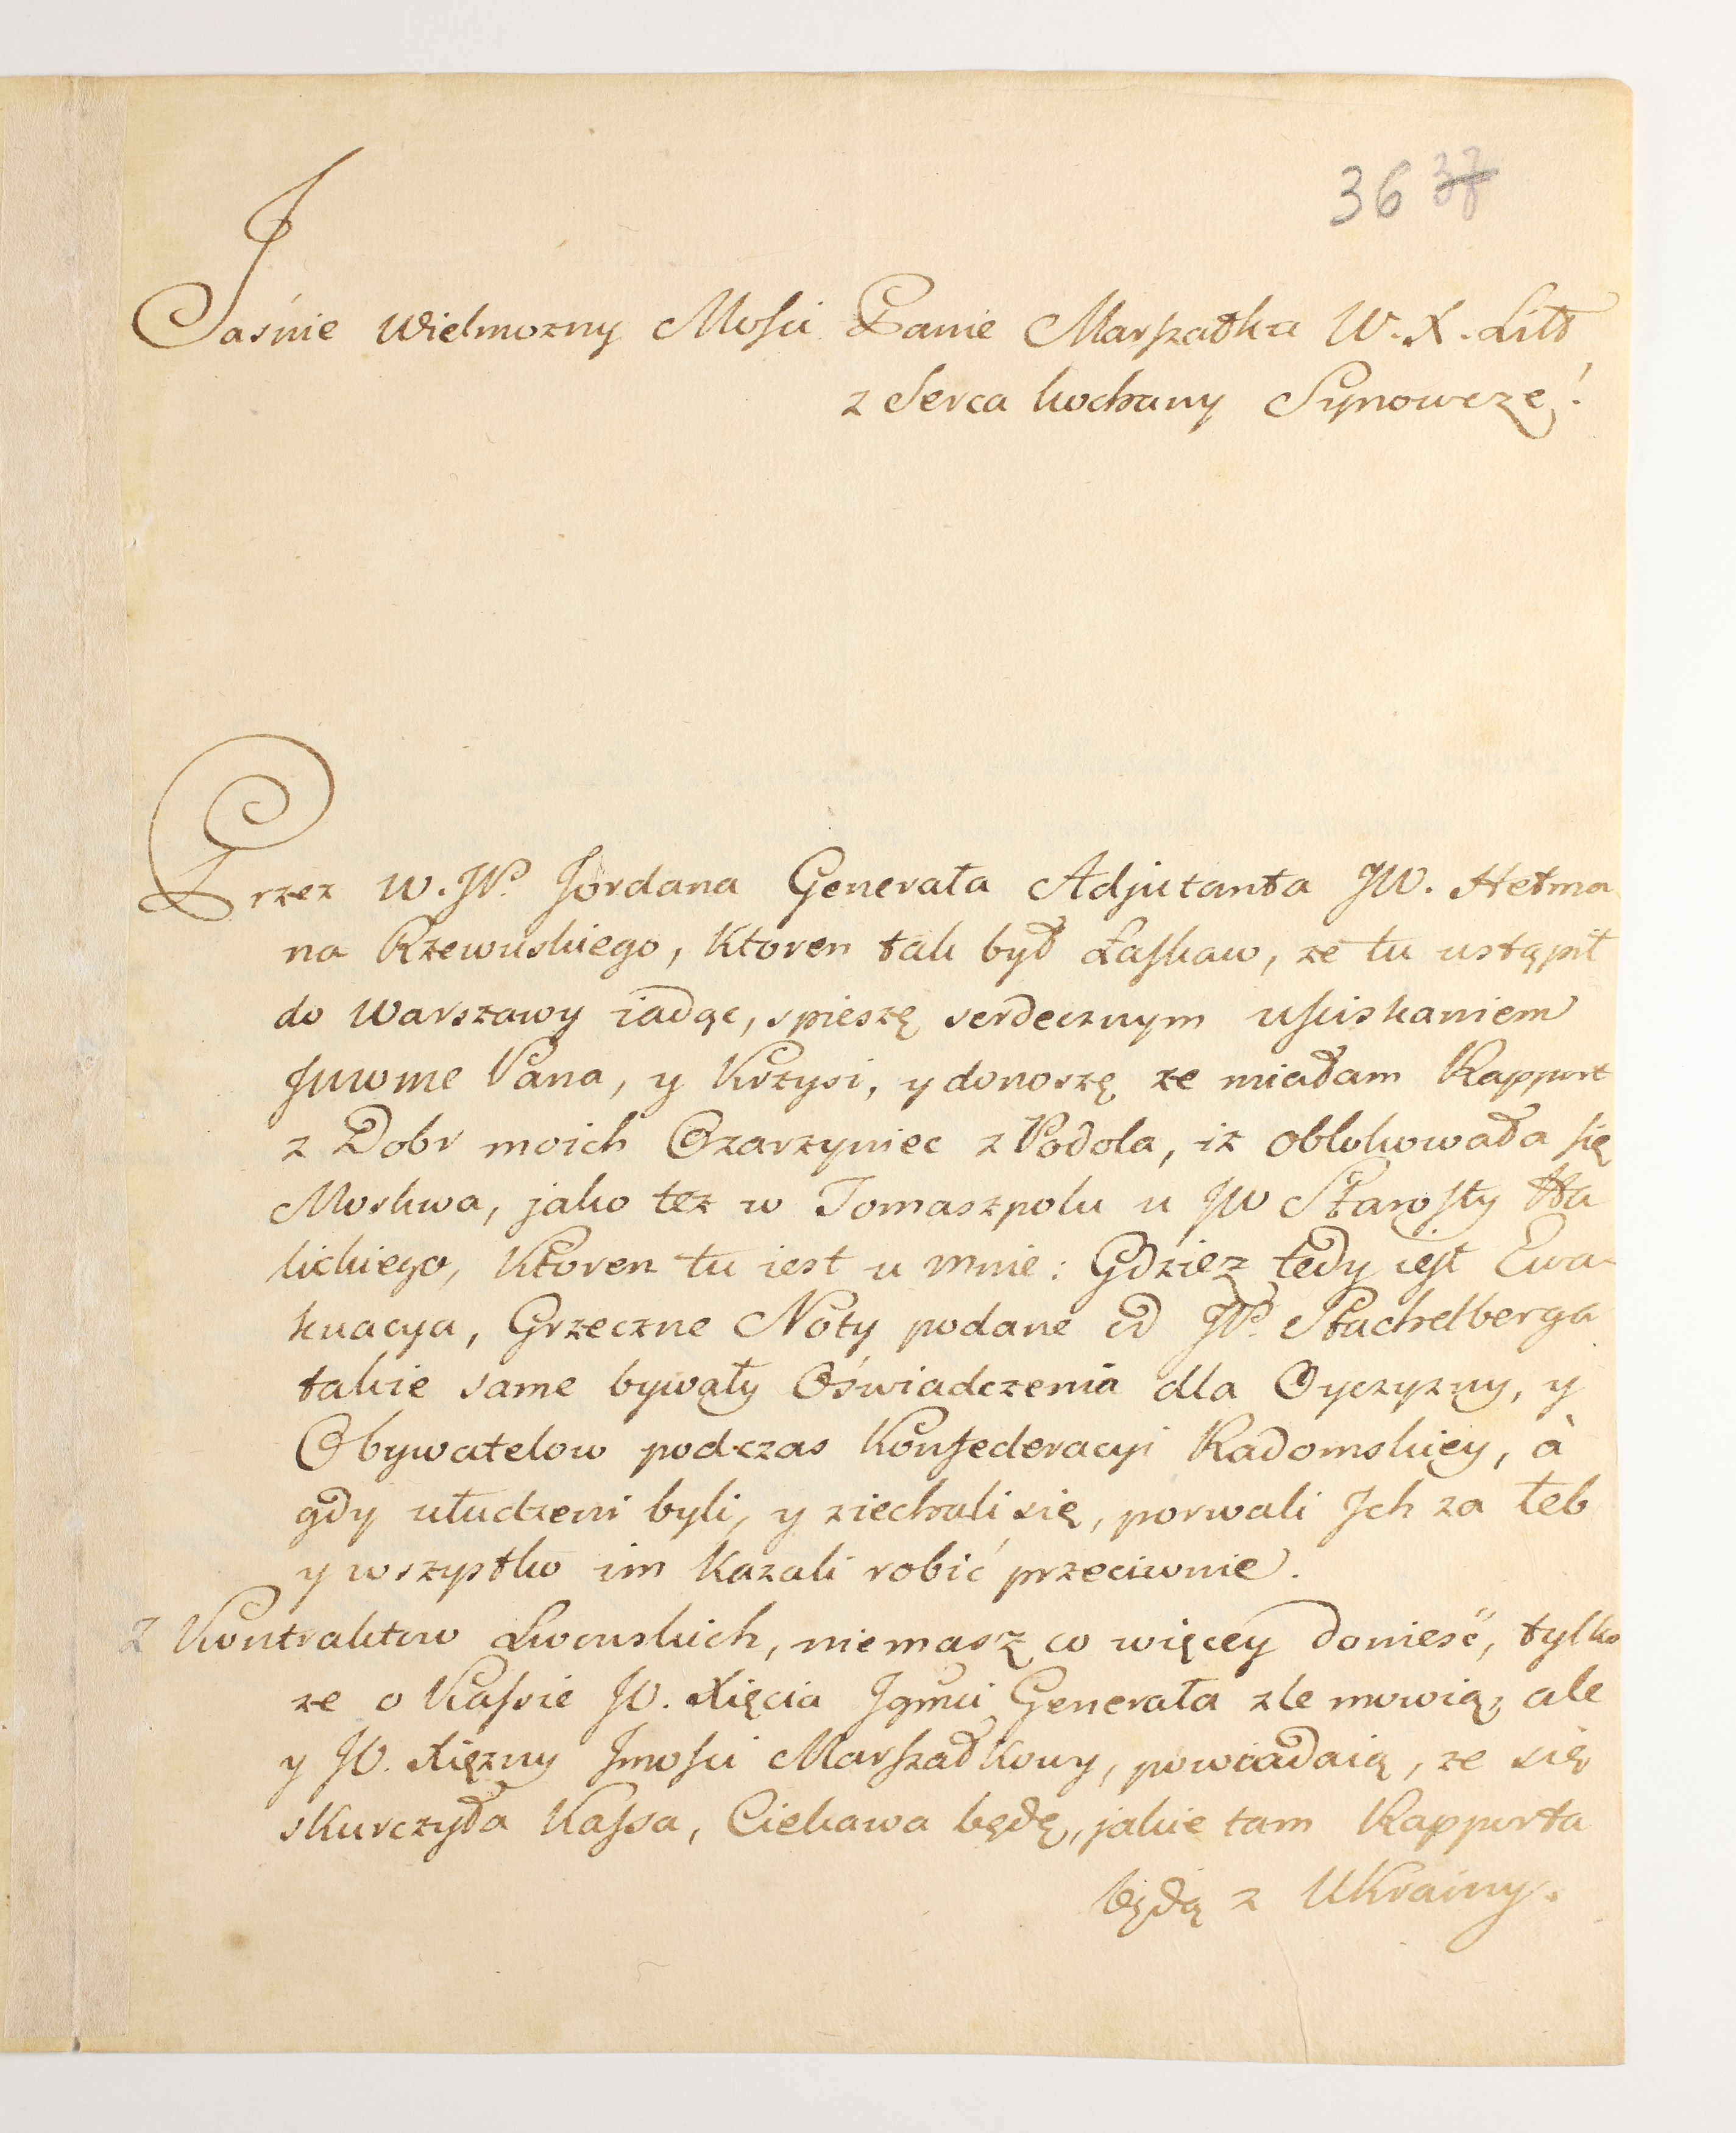 36 37
Jaśnie Wielmozny Mości Panie Marszałku W. X. Litt
z Serca kochany Synowcze!
Przez W. JP. Jordana Generała Adjutanta JW. Hetma
na Rzewuskiego, ktoren tak był Łaskaw, ze tu ustąpił
do Warszawy iadąc, spieszę serdecznym usciskaniem
Juwme Pana, y Krzysi, y donoszę ze miałam Rapport
z Dobr moich Czarzyniec z Podola, iz oblokowała się
Moskwa, jako tez w Tomaszpolu u JW Starosty Ha
lickiego, Ktoren tu iest u mnie: Gdziez tedy iest Ewa-
kuacya, Grzeczne Noty podane od JP. Stachelberga
takie same bywały Oświadczenia dla Oyczyzny, y
Obywatelow podczas Konfederacyi Radomskiey, à
gdy ułudzeni byli, y ziechali się, porwali Ich za łeb
y wszystko im kazali robić przeciwnie.
Z Kontraktow Lwowskich, niemasz co więcey donieść, tylko
ze o Kassie JO. Xięcia Jgmci Generała zle mowią, ale
y JO. Xięzny Jmości Marszałkowy, powiadaią, ze się
skurczyła Kassa, Ciekawa będę, jakie tam Rapporta
będą z Ukrainy.